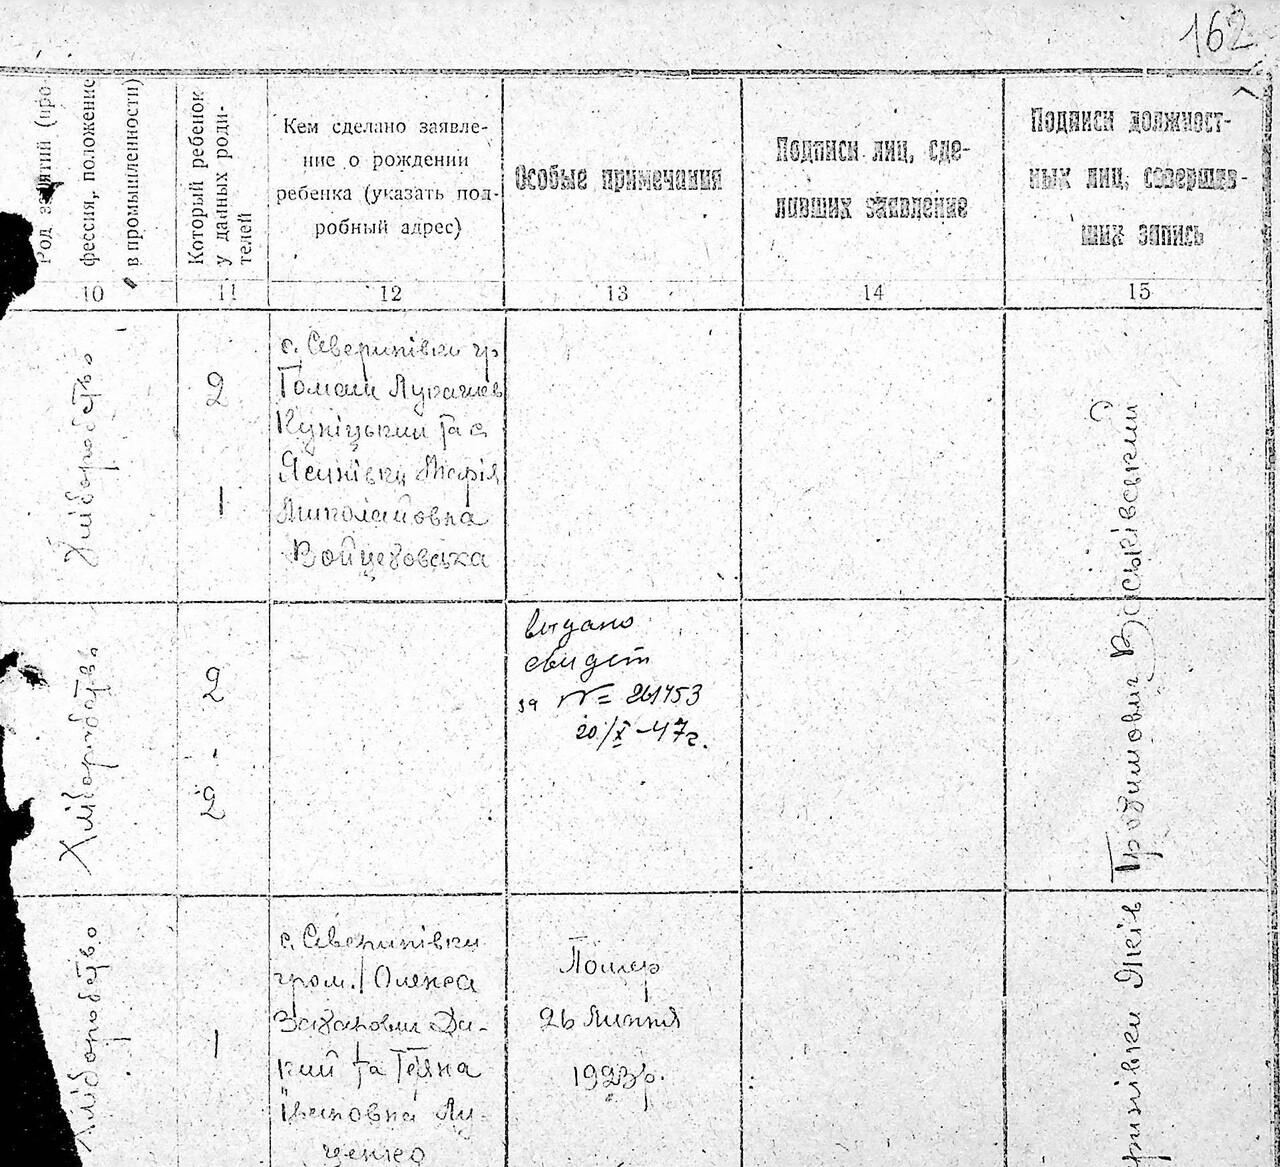 162
Род занятий (про-
фессия, положение
в промышленности)
Который ребенок
у данных роди-
телей
Кем сделано заявле-
ние о рождении
ребенка (указать под-
робный адрес)
Особые примечания
Подписи лиц, сде-
лавших заявление
Подписи должност-
ных лиц, совершив-
ших запись
10
11
12
13
14
15
Хліборобство
2
1
с. Северинівки гр
Томаш Лукашев
Куніцький та с.
Ясинівки Марія
Миколайовна
Войцеховська
Хліборобство
2
2
выдано
свидет
за № 261453
20/X-47г.
Хліборобство
1
с. Северинівки
гром. Олекса
Захарович Ди-
кий та Тетяна
Івановна Ли-
ценко
Помер
26 Липня
1923 р.
Яків
Трохимович Васьківський